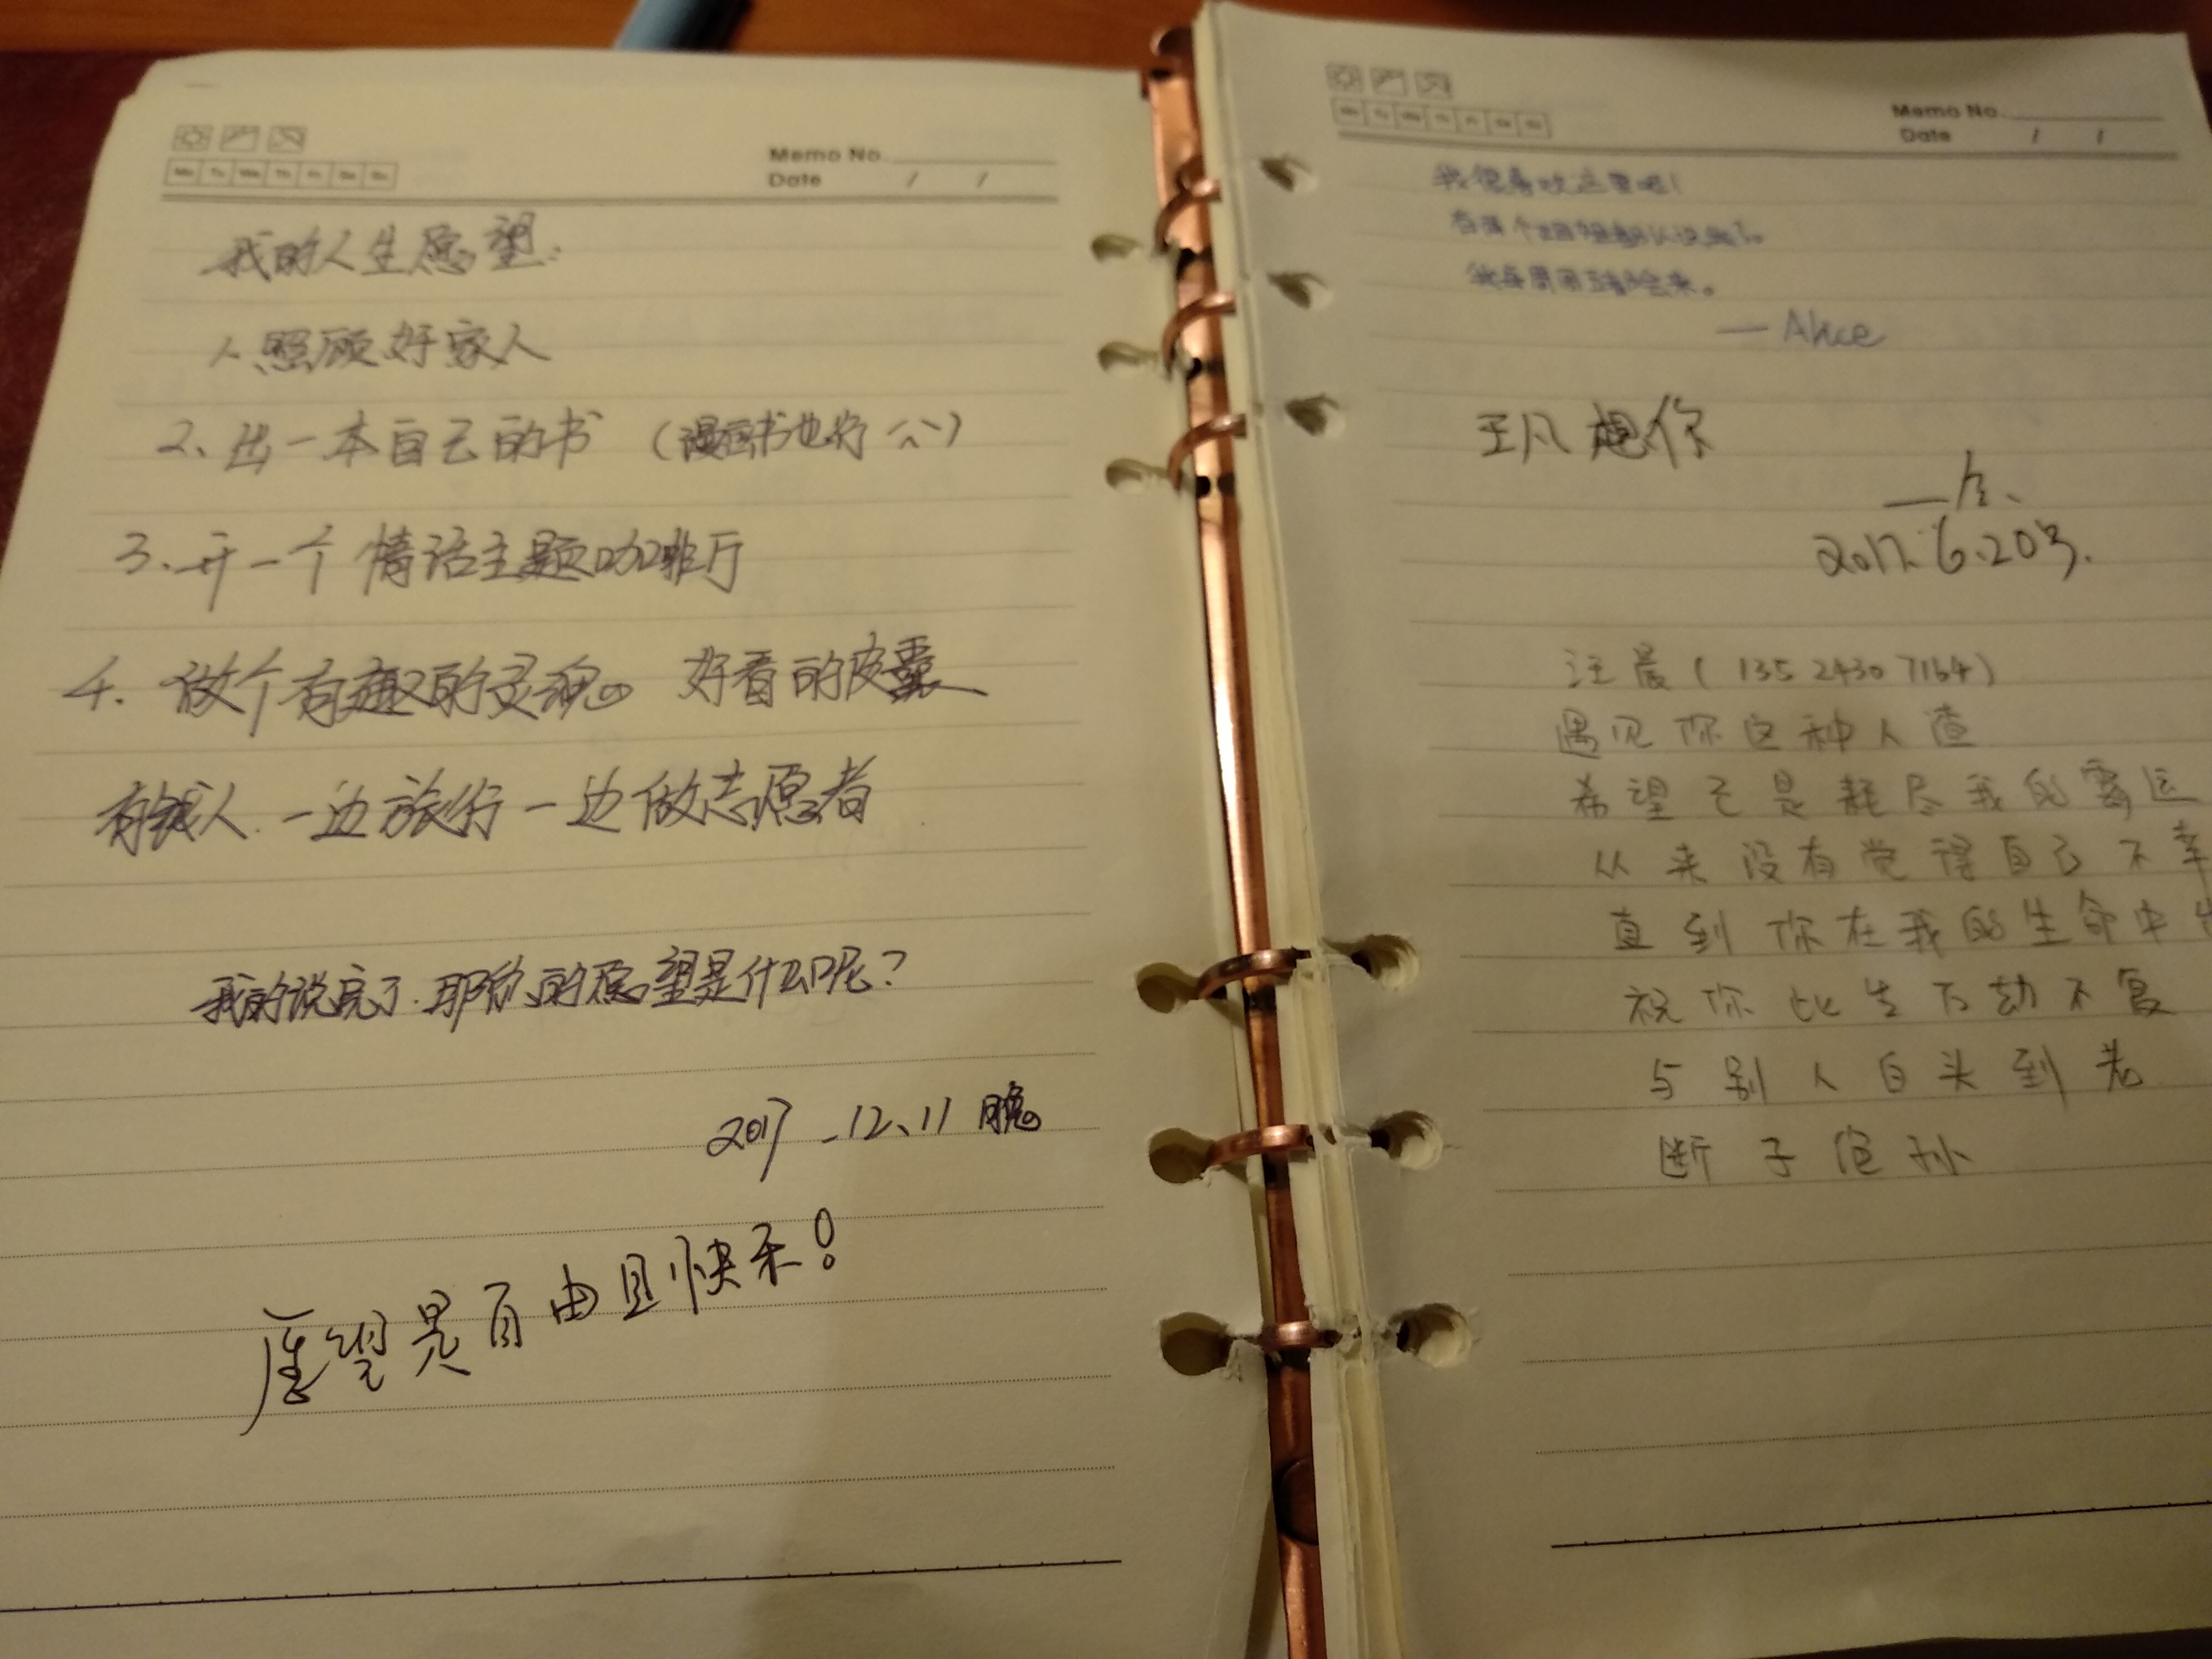 Mo Tu We Th Fr Sa Su
Memo No.
Date / /
我的人生愿望:
1、照顾好家人
2、出一本自己的书 (漫画书也行 ^^)
3、开一个情话主题咖啡厅
4、做个有趣的灵魂。好看的皮囊
有钱人、一边旅行一边做志愿者
我的说完了、那你的愿望是什么呢?
2017-12、11 晚
愿望是自由且快乐!
Mo Tu We Th Fr Sa Su
Memo No.
Date / /
我很喜欢这里呢!
我每周周五都会来。
— Alice
王凡想你
2017.6.203.
汪晨(135 2430 7164)
遇见你这种人渣
希望已是耗尽我的霉运
从来没有觉得自己不幸
直到你在我的生命中出
祝你此生万劫不复
与别人白头到老
断子绝孙